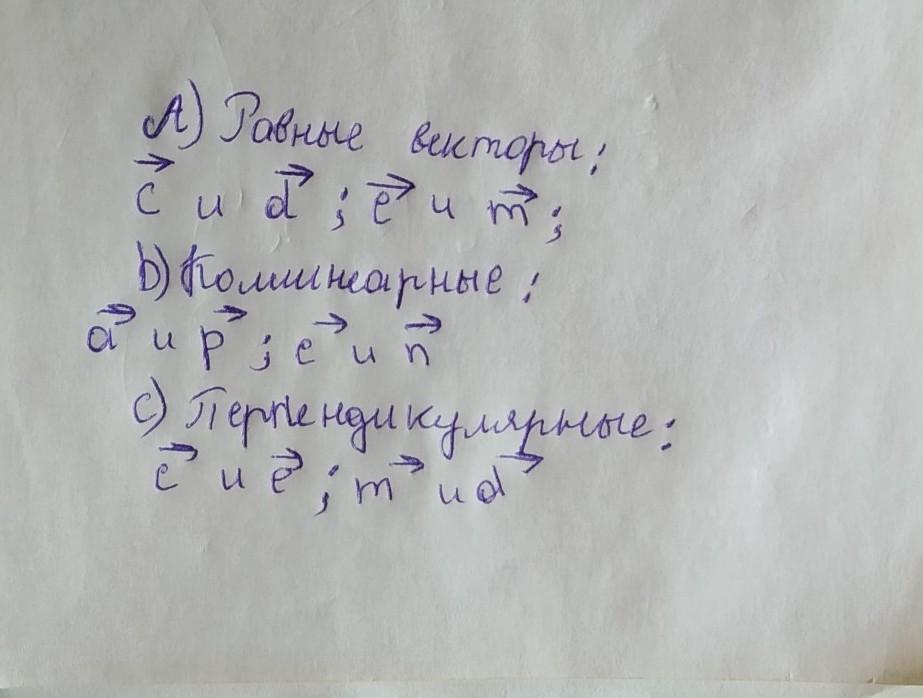 А) Равные векторы:
c⃗ и d⃗ ; e⃗ и m⃗ ;
b) Коллинеарные :
a⃗ и p⃗ ; e⃗ и n⃗
c) Перпендикулярные:
c⃗ и e⃗ ; m⃗ и d⃗